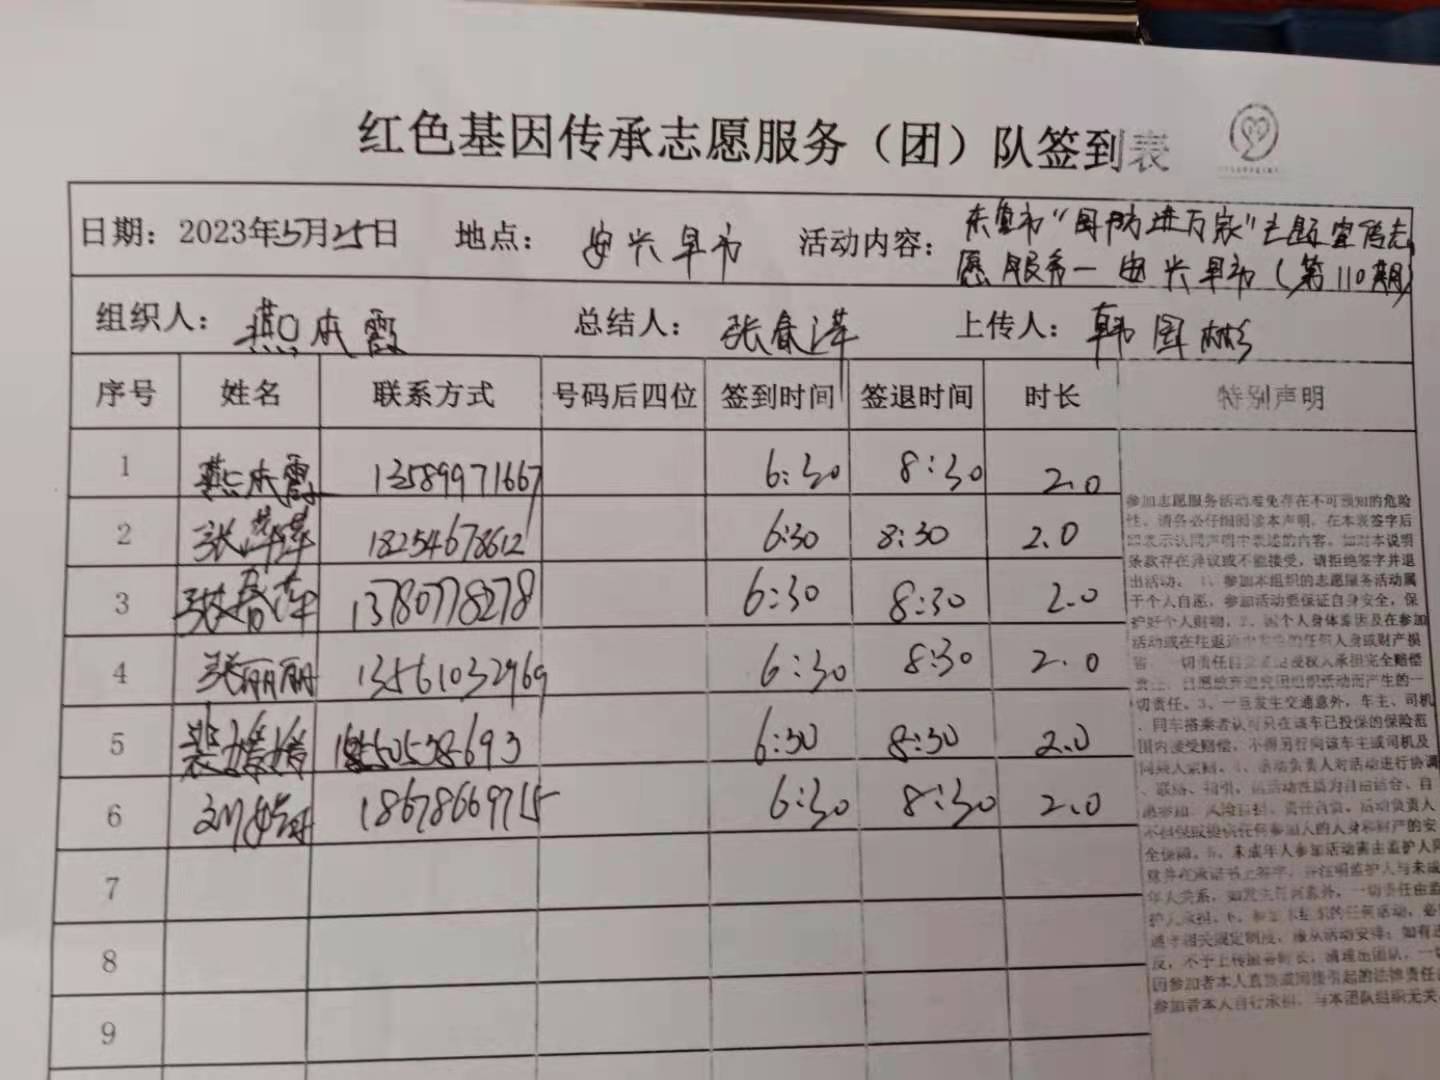 红色基因传承志愿服务（团）队签到表
日期：2023年5月25日 地点：安兴早市 活动内容：东营市“国防进万家”主题宣传志
愿服务—安兴早市（第110期）
组织人：燕本霞 总结人：张春萍 上传人：韩国彬
序号 姓名 联系方式 号码后四位 签到时间 签退时间 时长 特别声明
1 燕本霞 13589971667 6:30 8:30 2.0
2 张萍萍 18254678612 6:30 8:30 2.0
3 张春萍 13780778278 6:30 8:30 2.0
4 张丽丽 13561032969 6:30 8:30 2.0
5 裴媛媛 6:30 8:30 2.0
6 18678669715 6:30 8:30 2.0
7
8
9
参加志愿服务活动难免存在不可预知的危险
性，请务必仔细阅读本声明，在本表签字后
即表示认同声明中表述的内容。如对本说明
条款存在异议或不能接受，请拒绝签字并退
出活动。1、参加本组织的志愿服务活动属
于个人自愿，参加活动要保证自身安全，保
护好个人财物。2、因个人身体原因及在参加
活动或在往返途中发生的任何人身或财产损
一切责任 侵权人承担完全赔偿
组织活动而产生的一
切责任。3、一旦发生交通意外，车主、司机
、同车搭乘者认可只在该车已投保的保险范
围内接受赔偿，不得另行向该车主或司机及
同乘人索赔。4、活动负责人对活动进行协调
、联络、指引，
责任自负，活动负责人
不担保或提供任何参加人的人身和财产的安
全保障。5、未成年人参加活动需由监护人同
意并在承诺书上签字，并注明监护人与未成
年人关系，如发生任何意外，一切责任由监
护人承担。6、参加本组织的任何活动，必
遵守相关规定制度，服从活动安排；如有违
反，不予上传服务时长，清理出团队，一切
因参加者本人直接或间接引起的法律责任
参加者本人自行承担，与本团队组织无关。